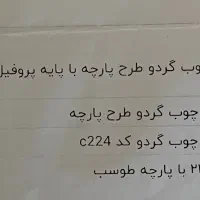 چوب گردو طرح پارچه با پایه پروفیل
چوب گردو طرح پارچه
چوب گردو کد c224
با پارچه طوسب